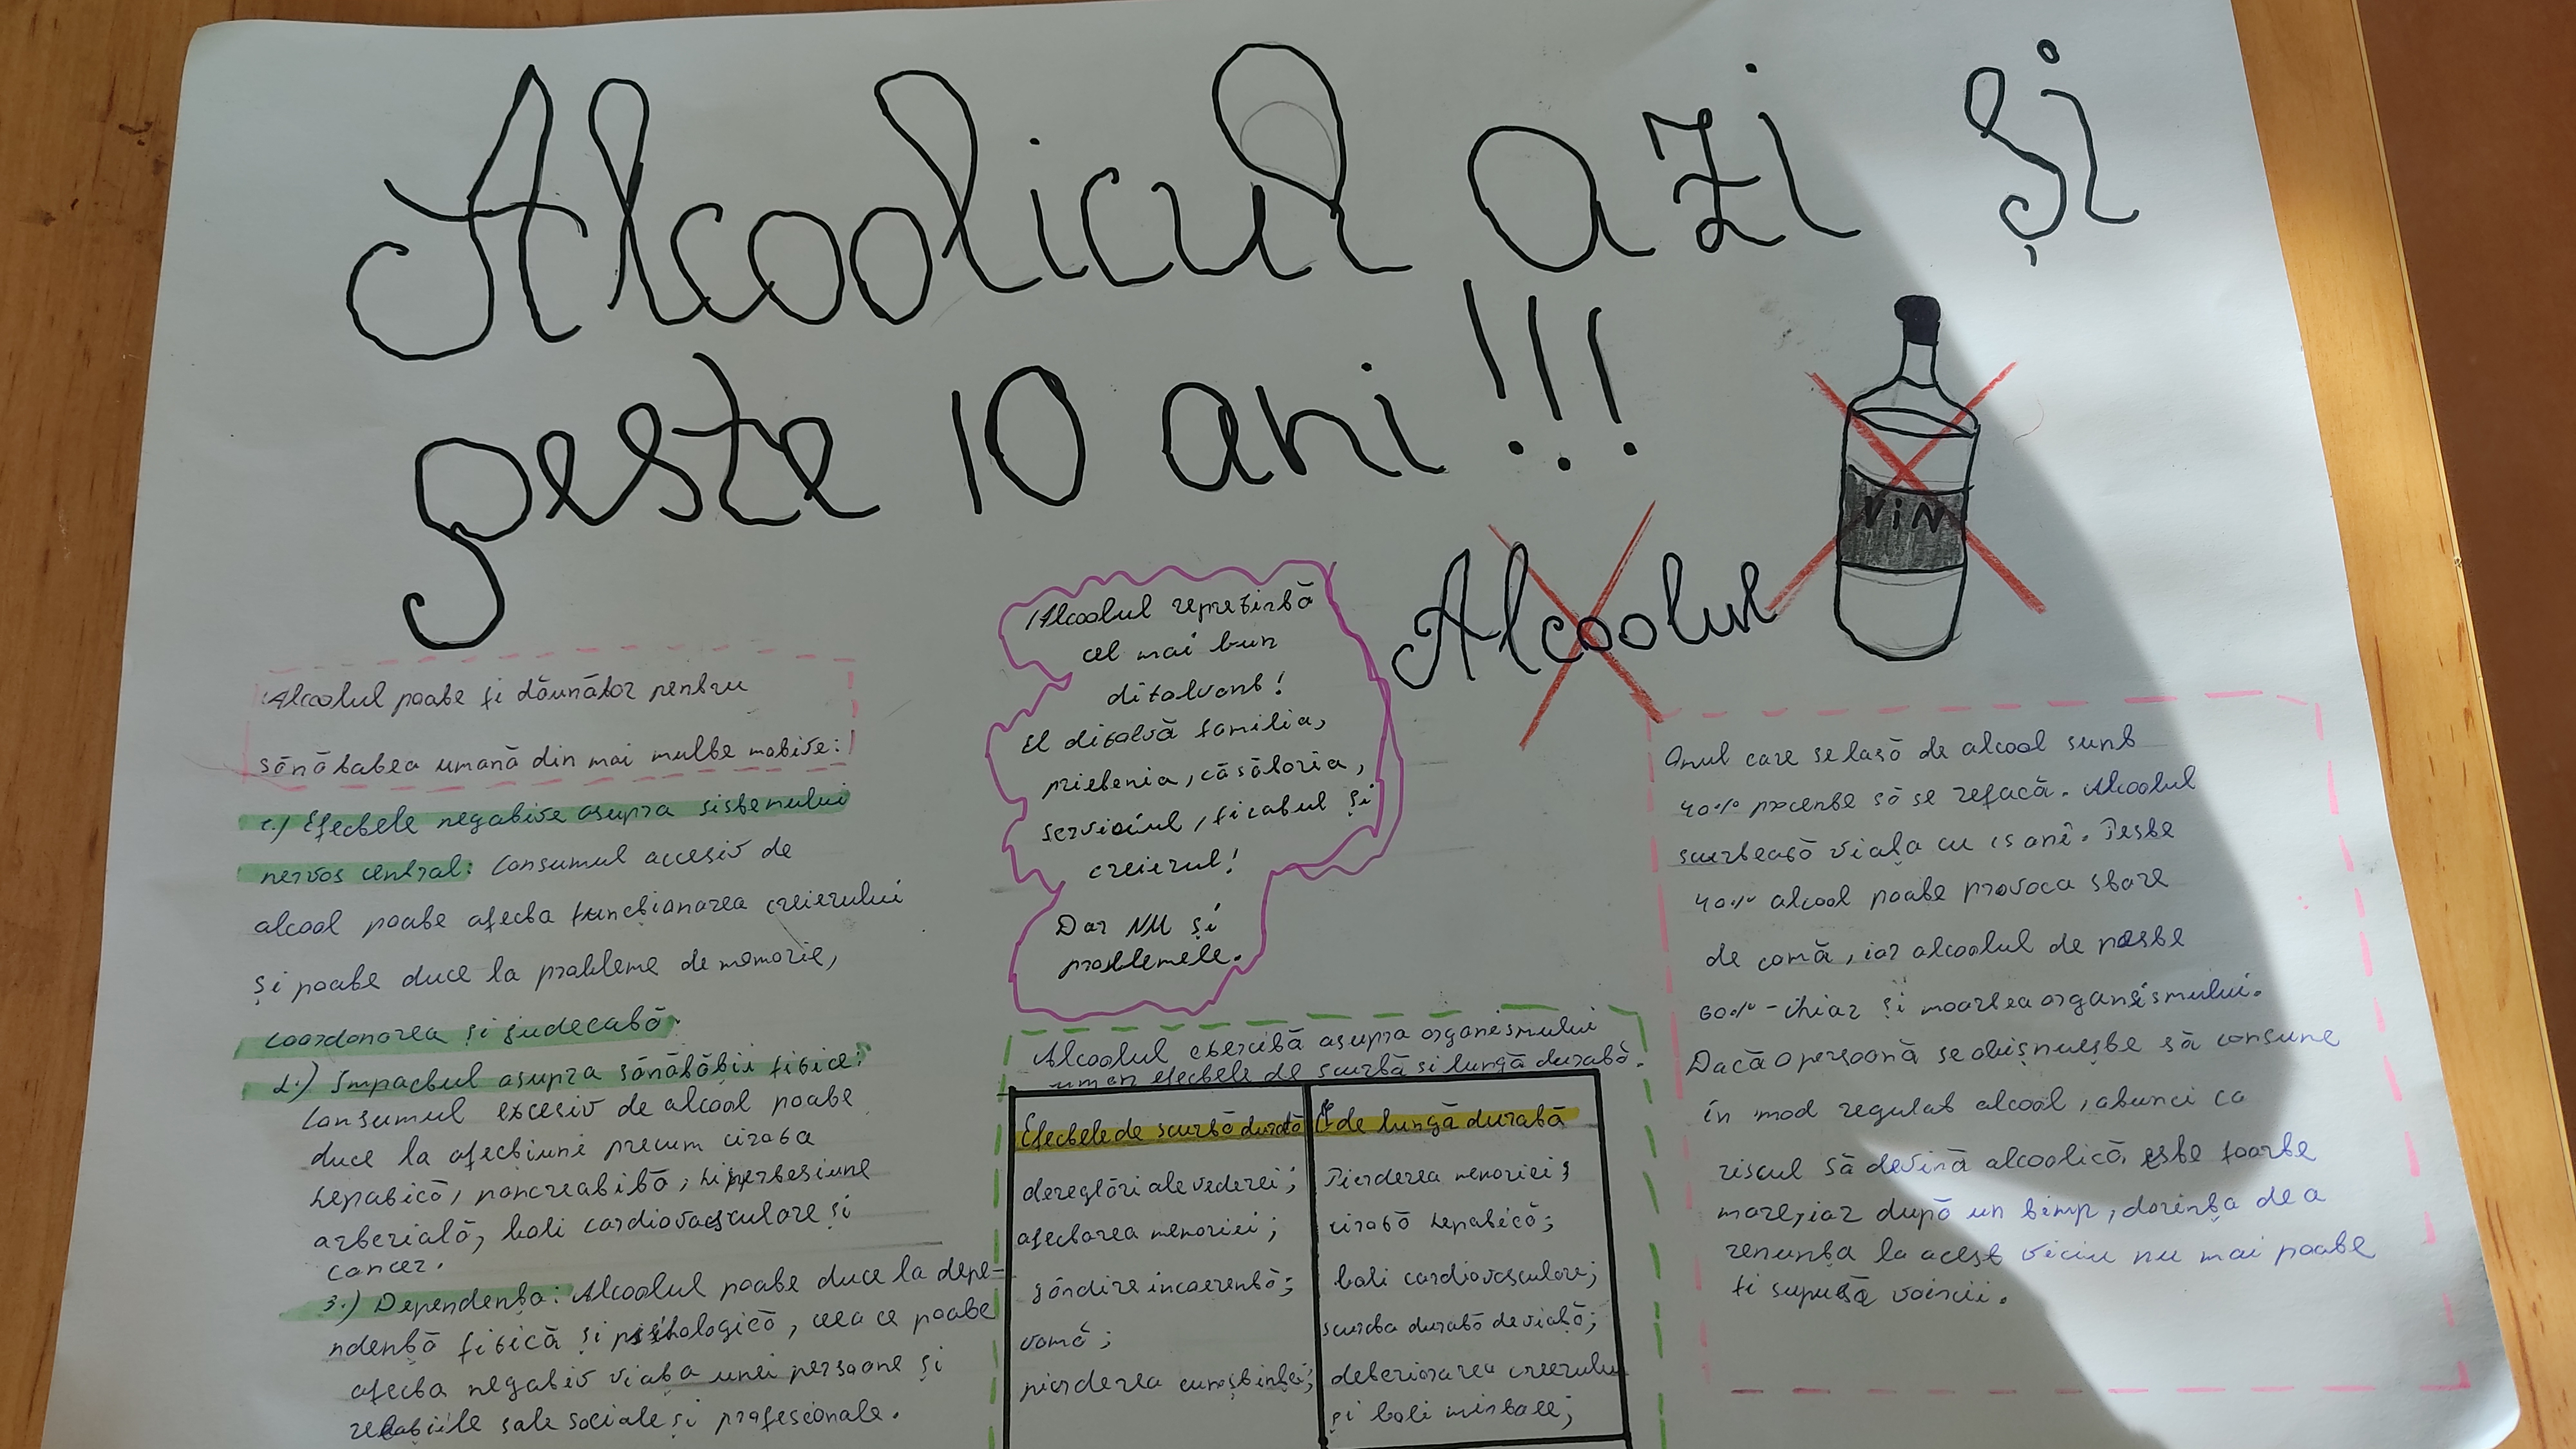 Alcoolicul azi și
peste 10 ani!!!
Alcoolul
VIN
Alcoolul poate fi dăunător pentru
sănătatea umană din mai multe motive:
1.) Efectele negative asupra sistemului
nervos central: Consumul accesiv de
alcool poate afecta funcționarea creierului
și poate duce la probleme de memorie,
coordonarea și judecată.
2.) Impactul asupra sănătății fizice:
Consumul excesiv de alcool poate
duce la afecțiuni precum ciroza
hepatică, pancreatită, hipertesiune
arterială, boli cardiovasculare și
cancer.
3.) Dependența: Alcoolul poate duce la depe-
ndență fizică și psihologică, ceea ce poate
afecta negativ viața unei persoane și
relațiile sale sociale și profesionale.
Alcoolul reprezintă
cel mai bun
dizolvant!
El dizolvă familia,
prietenia, căsătoria,
serviciul, ficatul și
creierul!
Dar NU și
problemele.
Alcoolul exercită asupra organismului
uman efectele de scurtă si lungă durată.
Efectele de scurtă durată
dereglări ale vederei;
afectarea memoriei;
gândire incoerentă;
vomă;
pierderea cunoștinței;
de lungă durată
Pierderea memoriei;
ciroză hepatică;
boli cardiovasculare;
scurta durată de viață;
deteriorarea creerului
și boli mintale;
Omul care se lasă de alcool sunt
40% procente să se refacă. Alcoolul
scurtează viața cu 15 ani. Peste
40% alcool poate provoca stare
de comă, iar alcoolul de peste
60% - chiar și moartea organismului.
Dacă o persoană se obișnuește să consume
în mod regulat alcool, atunci ca
riscul să devină alcoolică, este foarte
mare, iar după un timp, dorința de a
renunța la acest viciu nu mai poate
fi supusă voinii.